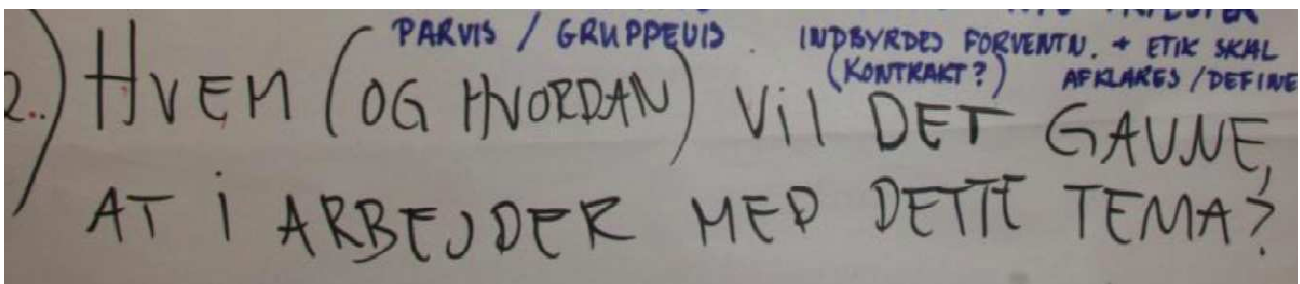 PARVIS / GRUPPEVIS. INDBYRDES FORVENTN. + ETIK SKAL
(KONTRAKT?) AFKLARES / DEFINE
2.) HVEM (OG HVORDAN) VIL DET GAVNE,
AT I ARBEJDER MED DETTE TEMA?